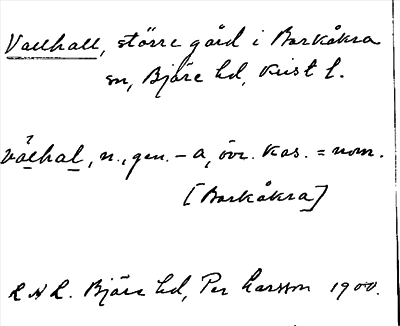 Vallhall, större gård i Barkåkra
sn, Bjäre hd, Krist l.
vä̀lhal, n., gen. -a, övr. kas. = nom.
[Barkåkra]
L N L. Bjäre hd, Per Larsson 1900.